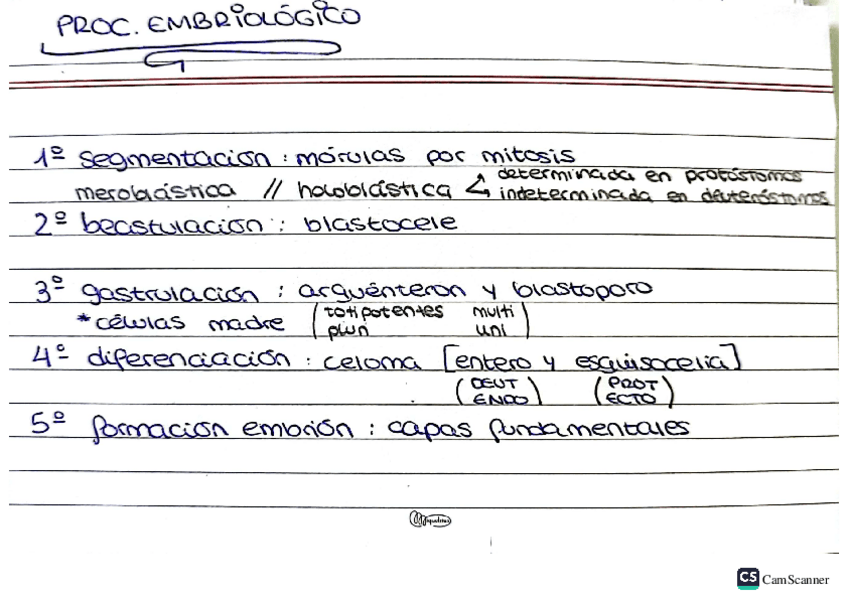 PROC. EMBRIOLÓGICO
1º segmentación : mórulas por mitosis
meroblástica // holoblástica determinada en protóstomos
indeterminada en deuteróstomos
2º beastulación : blastocele
3º gastrulación : arquénteron y blastoporo
*células madre (totipotentes multi
pluri uni)
4º diferenciación : celoma [entero y esquisocelia]
(DEUT (PROT
ENDO) ECTO)
5º formación embrión : capas fundamentales
CS CamScanner